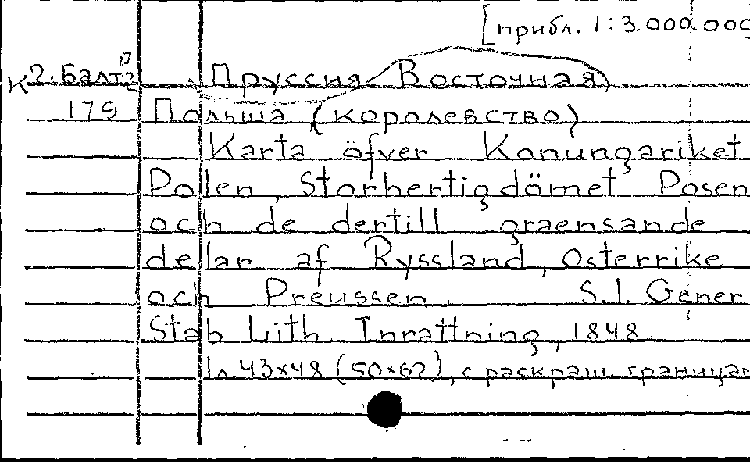 [прибл. 1:3.000.000
К 2. Балт 2 Пруссия Восточная
179 Польша (королевство)
Karta öfver Konungariket
Polen, Storhertigdömet Posen
och de dertill graensande
delar af Ryssland, Osterrike
och Preussen. S.l. Gener
Stab Lith. Inrattning, 1848
1л 43x48 (50x62), с раскраш. границам